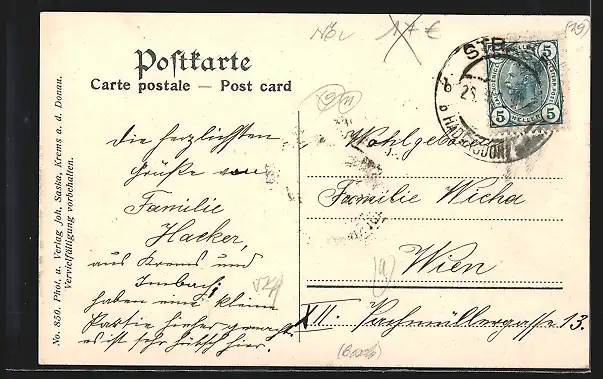 Postkarte
Carte postale — Post card
No. 850. Phot. u. Verlag Joh. Saska, Krems a. d. Donau.
Vervielfältigung vorbehalten.
Növ 17 €
(19)
5 5
5 5
HELLER
STRA
25.
HADERSDORF
die herzlichsten
Grüße von
Familie
Hacker,
aus Krems und
Imbach
haben eine kleine
Partie hierher gemacht
es ist sehr hübsch hier.
Wohlgeboren
Familie Wicha
Wien
XII. Pachmüllergasse 13.